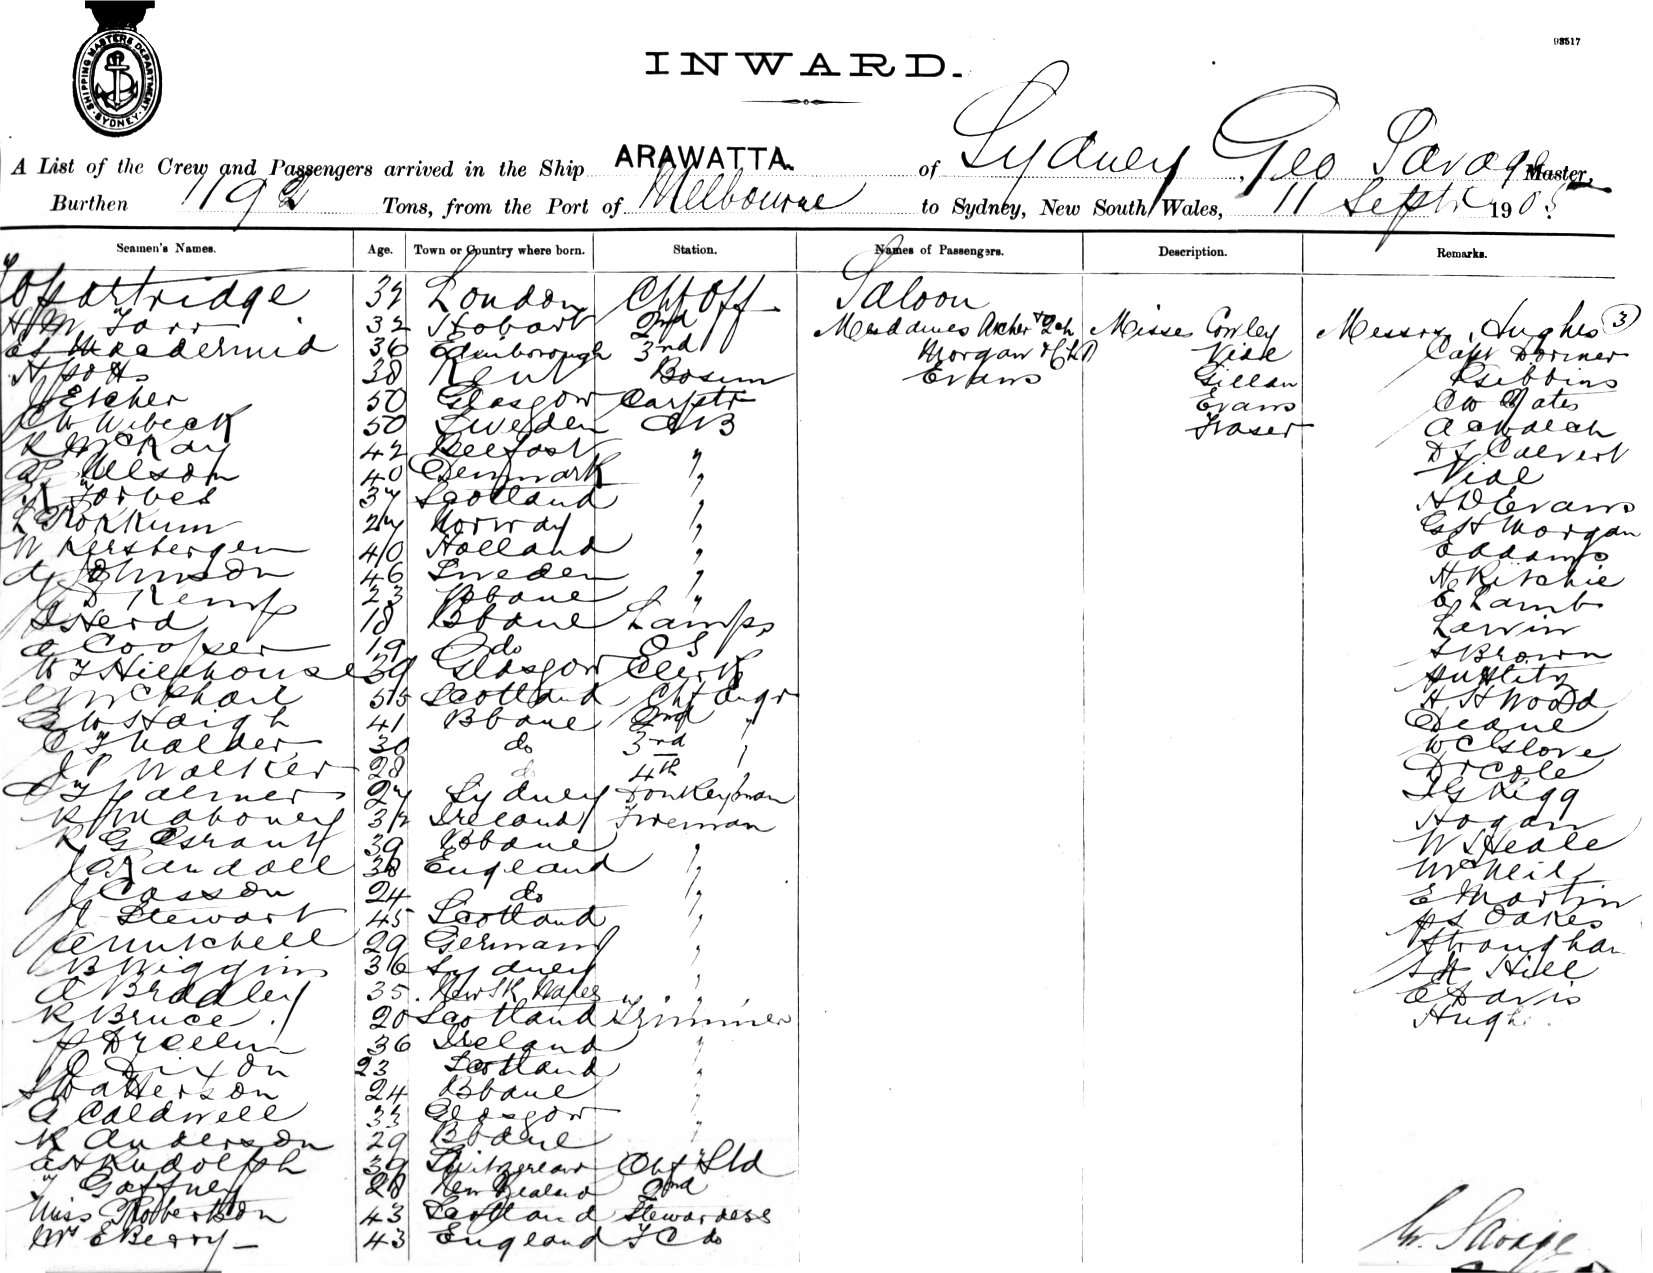 SHIPPING MASTERS DEPARTMENT SYDNEY
93517
INWARD.
A List of the Crew and Passengers arrived in the Ship ARAWATTA. of Sydney Geo Savage Master,
Burthen 1192 Tons, from the Port of Melbourne to Sydney, New South Wales, 11 Septr 1905
Seamen's Names. Age. Town or Country where born. Station. Names of Passengers. Description. Remarks.
Partridge London Chf Off Saloon
H M Tarr 32 Hobart 2nd Mesdames Archer + 2ch Misses Cowley Messrs Hughes (3)
Macdermid 36 Edinborough 3rd Morgan + Chd Vide Capt Dormer
H Potts 38 Kent Bosun Evans Gillan Gibbins
J Etcher 50 Glasgow Carptr Evans CW Yates
C W Wibeck 50 Sweden AB Fraser
R McKay 42 Belfast " D J Calvert
P Nelson 40 Denmark " Vide
A Forbes 37 Scotland H D Evans
27 Norway " G H Morgan
W Kersbergen 40 Holland " E Adams
Johnson 46 Sweden " H Ritchie
D Kemp 23 Bbane " E Lamb
Herd 18 Bbane Lamps Larvin
A Cooper 19 do OS Brown
W J Hillhouse 39 Glasgow Clerk
McPhail 55 Scotland Chf Engr H H Wood
G W Haigh 41 Bbane 2nd " Deane
C T Halder 30 do 3rd " W C Glove
J P Walker 28 do 4th " Dr Cole
27 Sydney Donkeyman J G Rigg
R Mahoney 32 Ireland Fireman Hogan
R G Grant 39 Bbane " W S Heale
J Randall 38 England " McNeil
J Casson 24 do " E Martin
J Stewart 45 Scotland " Oakes
A Mitchell 29 Germany " Stroughan
B Wiggins 36 Sydney " Hill
A Bradley 35 New Sth Wales " E Davis
R Bruce 20 Scotland Trimmer Hugh
P Breen 36 Ireland "
J Dixon 23 Scotland "
Watterson 24 Bbane "
A Caldwell 33 Glasgow "
R Anderson 29 Bbane "
A H Rudolph 39 Switzerland Chf Std
T Gaffney 28 New Zealand 2nd
Miss Robertson 43 Scotland Stewardess
Mrs E Berry 43 England F C do
G. Savage